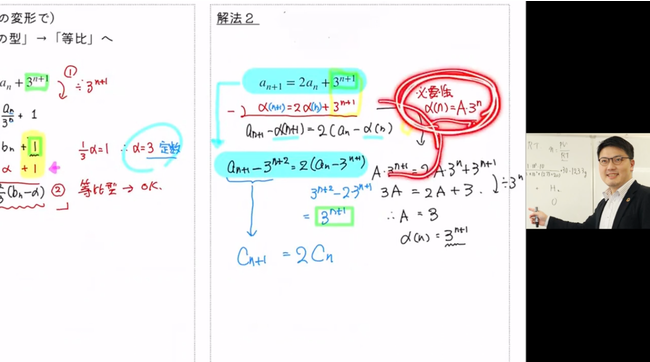 の変形で)
の型」→「等比」へ
aₙ + 3ⁿ⁺¹
① ÷3ⁿ⁺¹
aₙ/3ⁿ + 1
bₙ + 1
α + 1
1/3 α = 1 ∴ α = 3 定数
(bₙ - α) ② 等比型 → OK.
解法2
aₙ₊₁ = 2aₙ + 3ⁿ⁺¹
-) α(n+1) = 2α(n) + 3ⁿ⁺¹
aₙ₊₁ - α(n+1) = 2(aₙ - α(n))
必要性
α(n) = A・3ⁿ
aₙ₊₁ - 3ⁿ⁺² = 2(aₙ - 3ⁿ⁺¹)
3ⁿ⁺² - 2・3ⁿ⁺¹
= 3ⁿ⁺¹
Cₙ₊₁ = 2Cₙ
A・3ⁿ⁺¹ = 2A・3ⁿ + 3ⁿ⁺¹
÷3ⁿ
3A = 2A + 3.
∴ A = 3
α(n) = 3ⁿ⁺¹